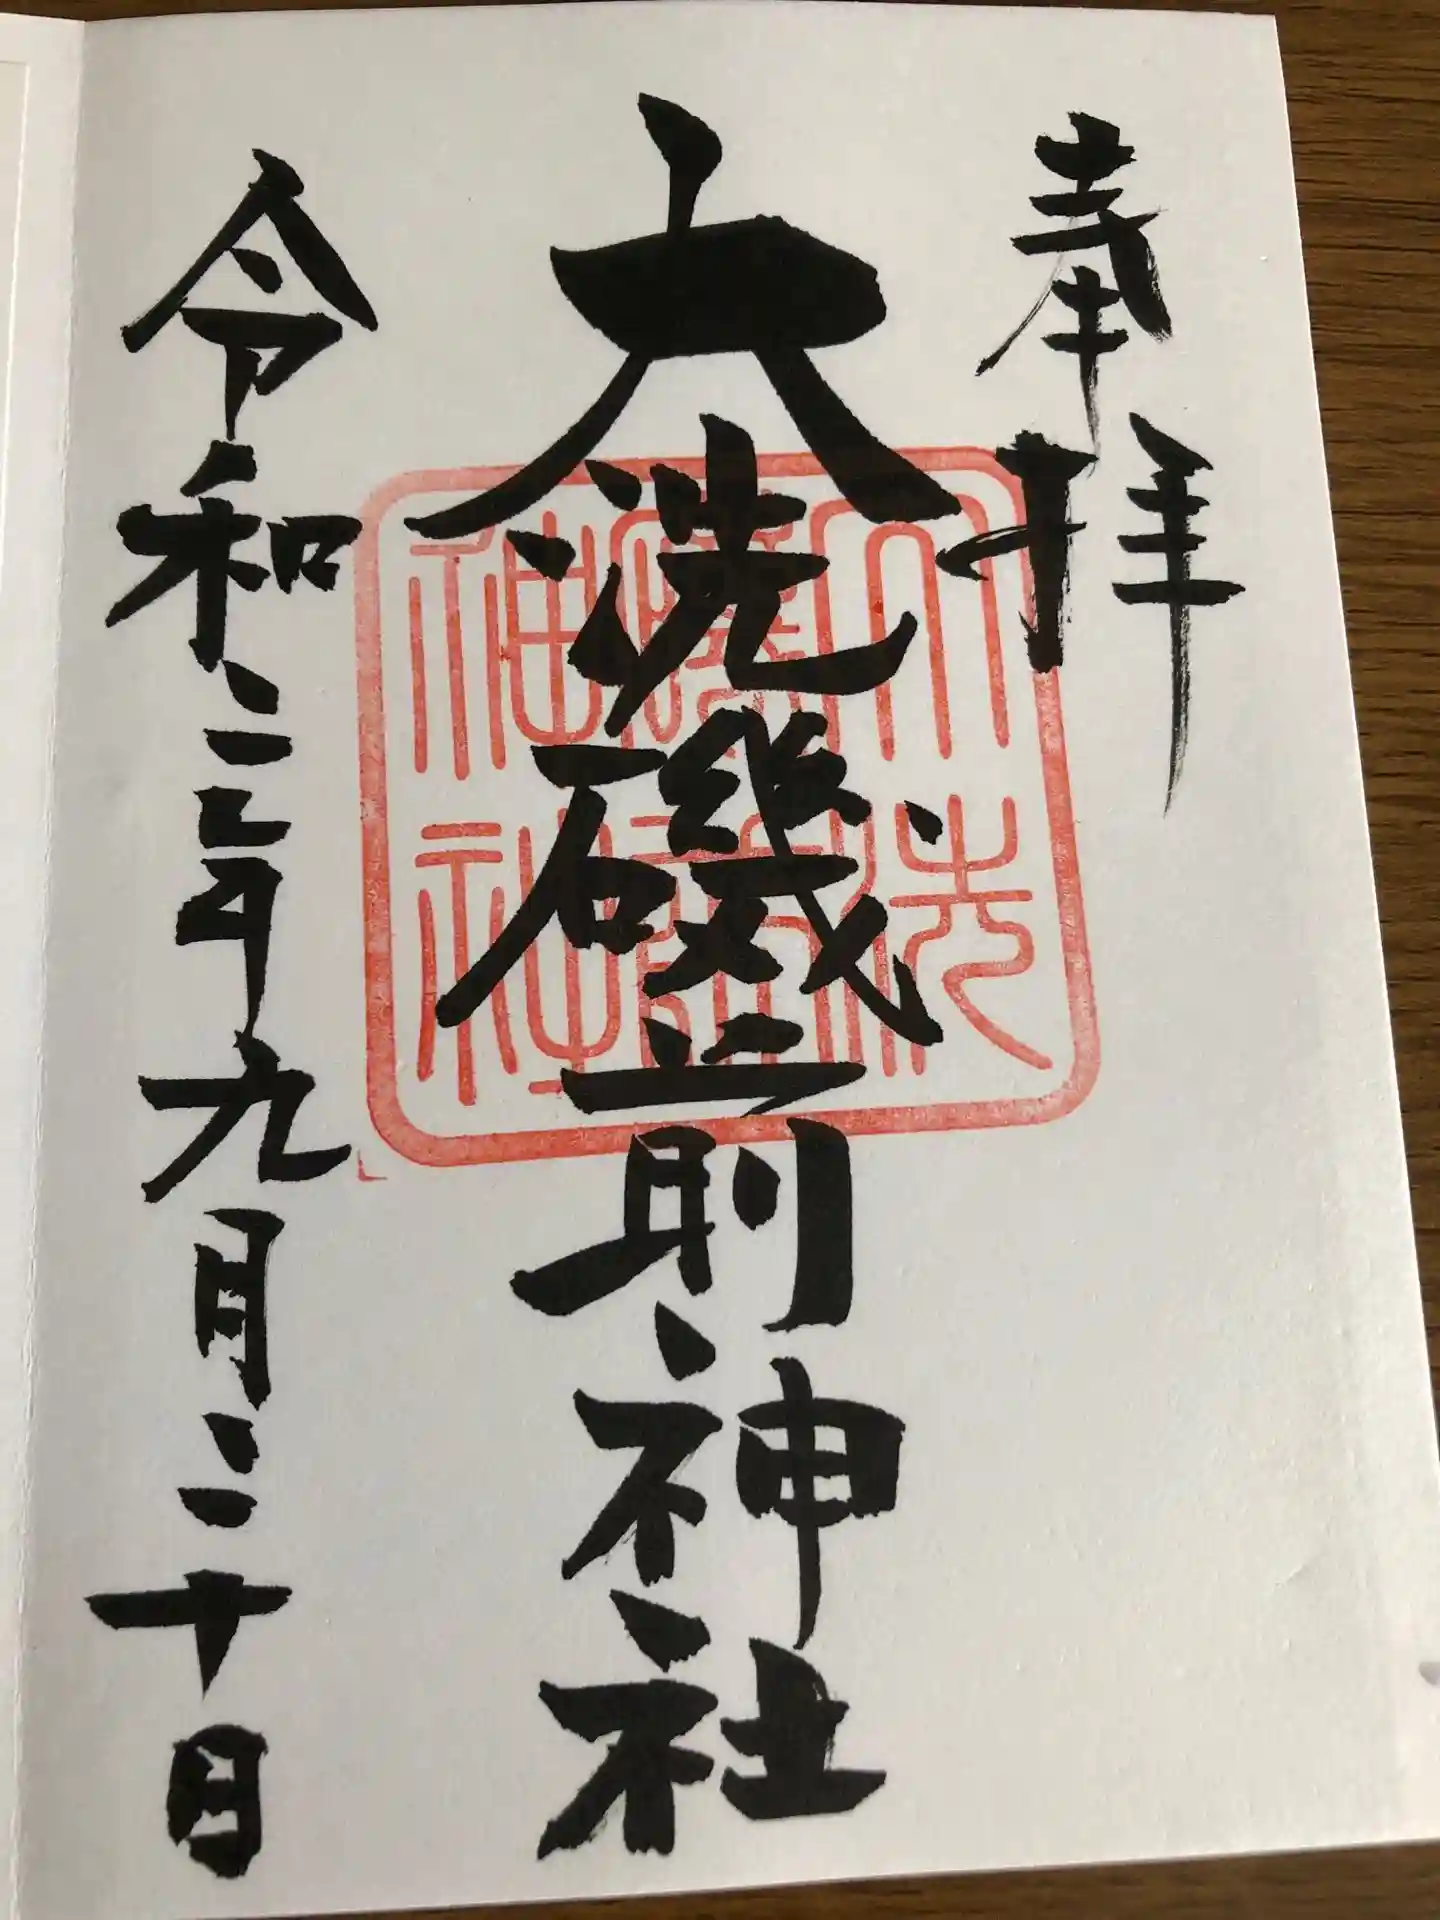 奉拝
大洗磯前神社
令和二年九月二十日
大洗
磯前
神社